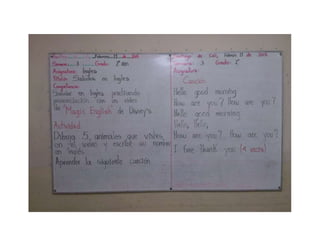 Febrero 19 de
Semana: 3 Grado: 2°
Asignatura: Ingles
Saludos en Ingles
Competencia:
Saludar en Ingles practicando
pronunciación con los videos
de "Magic English" de Disney's
Actividad
Dibuja 5 animales que viven
en el y escribe su nombre
en Inglés.
Aprender la siguiente canción
Santiago de Cali, Febrero 19 de
Semana: 3 Grado: 2°
Asignatura:
Canción
Hello good morning
How are you? How are you?
Hello good morning
Hello, Hello,
How are you? How are you?
I Fine Thank you